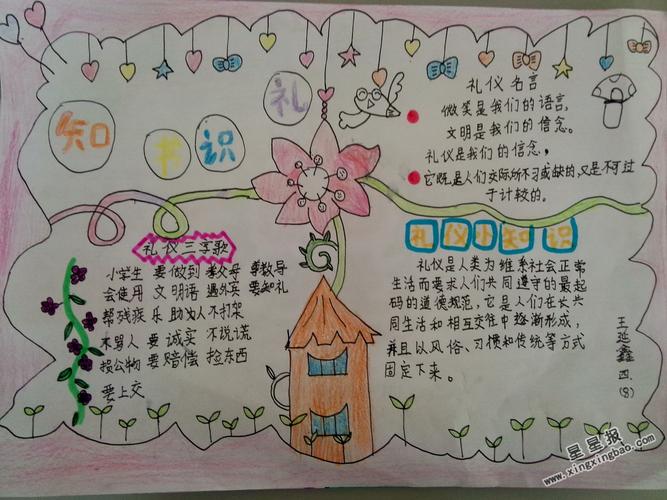 知书识礼
礼仪名言
微笑是我们的语言,
文明是我们的信念。
礼仪是我们的信念,
它既是人们交际所不可或缺的,又是不可过
于计较的。
礼仪三字歌
小学生 要做到 孝父母 尊教导
会使用 文明语 遇外宾 要知礼
帮残疾 乐助人 不打架
不骂人 要诚实 不说谎
损公物 要赔偿 捡东西
要上交
礼仪小知识
礼仪是人类为维系社会正常
生活而要求人们共同遵守的最起
码的道德规范,它是人们在长共
同生活和相互交往中逐渐形成,
并且以风俗、习惯和传统等方式
固定下来。
王延鑫 四.(8)
星星报
www.xingxingbao.com